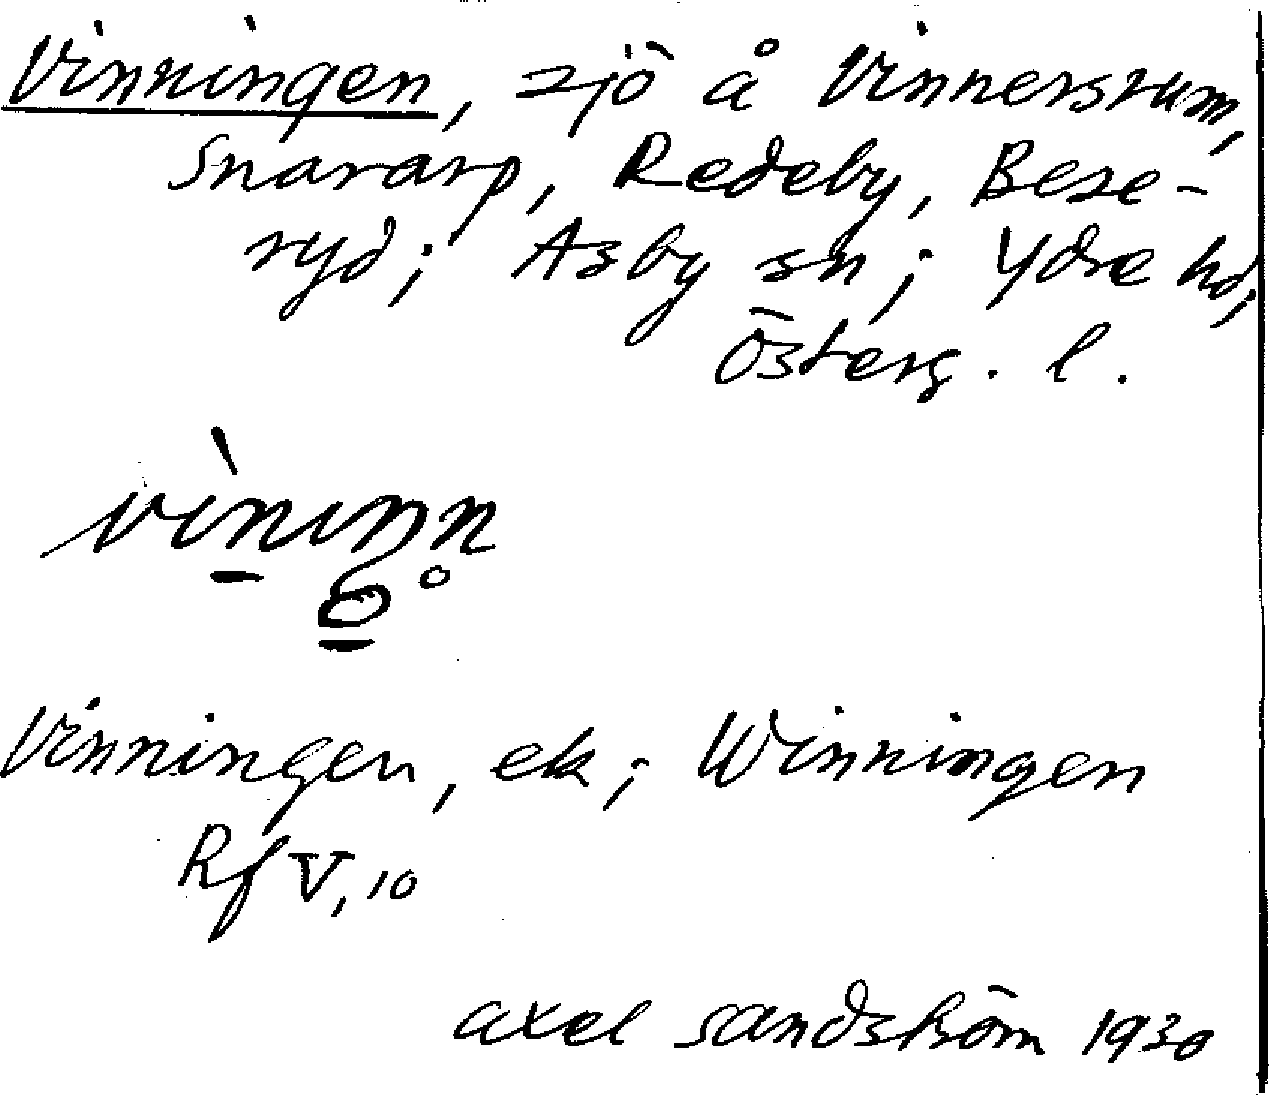 Vinningen, sjö å Vinnersrum,
Snararp, Redeby, Bese-
ryd; Asby sn; Ydre hd,
Österg. l.
Vinningen, ek; Winningen
Rf V, 10
axel sandström 1930